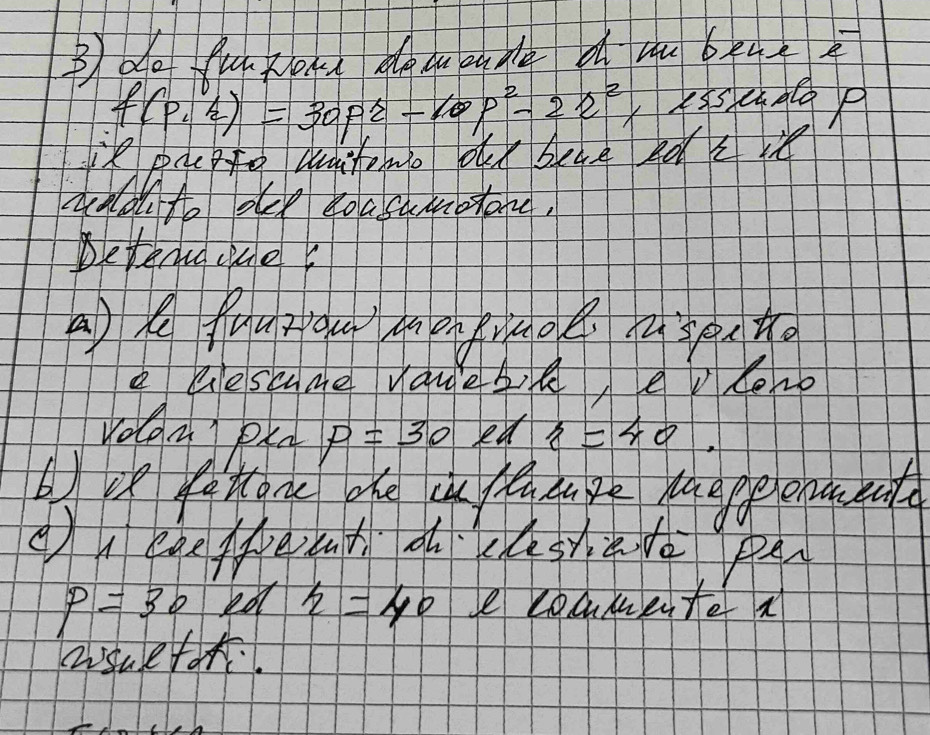 3) La funzione domanda di un bene è
f(p, r) = 30pr - 10p² - 2r², essendo p
il prezzo unitario del bene ed r il
reddito del consumatore.
Determina:
a) le funzioni marginali rispetto
a ciascuna variabile, e i loro
valori per p = 30 ed r = 40.
b) il fattore che influenza maggiormente
c) i coefficienti di elasticità per
p = 30 ed r = 40 e commenta i
risultati.